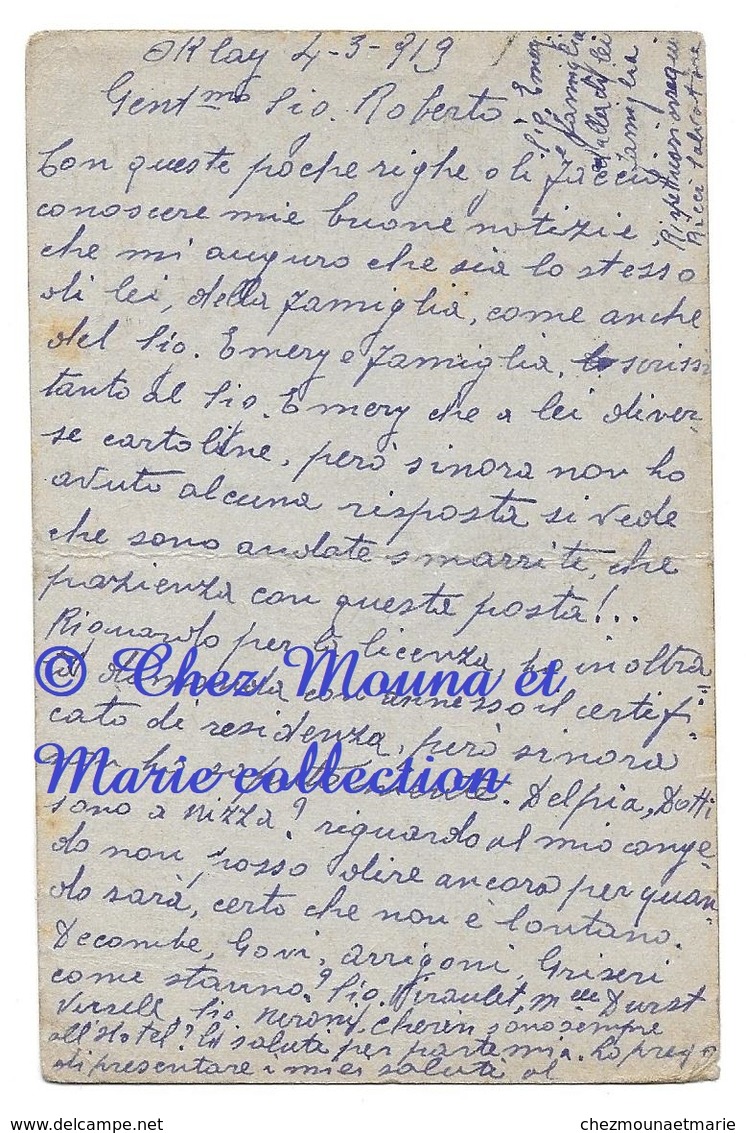 Oklay 4-3-919
Gent.mo Sig. Roberto
Con queste poche righe gli faccio
conoscere mie buone notizie,
che mi auguro che sia lo stesso
di lei, della famiglia, come anche
del Sig. Emery e famiglia, scrissi
tanto al Sig. Emery che a lei diver-
se cartoline, però sinora non ho
avuto alcuna risposta si vede
che sono andate smarrite, che
pazienza con questa posta!..
Riguardo per la licenza, ho inoltra=
ta domanda con annesso il certifi-
cato di residenza, però sinora
non ho saputo niente. Delpia, Dotti
sono a Nizza? riguardo al mio conge=
do non posso dire ancora per quan-
do sarà, certo che non è lontano.
Decombe, Govi, Arrigoni, Griseri
come stanno? Sig. Virault, Mlle Durst
Sig. Neroni, Cherin sono sempre
all'Hotel? li saluti per parte mia. La prego
di presentare i miei saluti al
Sig. Emery
e famiglia
e alla di lei
famiglia
Rispettuosi ossequi
Ricci Salvatore
© Chez Mouna et
Marie collection
chezmounaetmarie